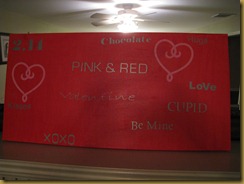 2.14
Chocolate
PINK & RED
LoVe
CUPID
Be Mine
XOXO